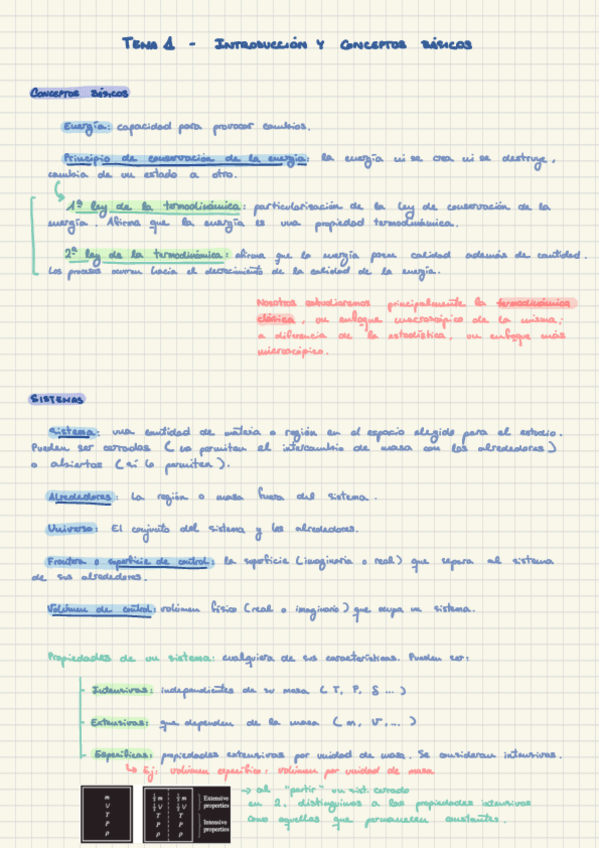 TEMA 1 - INTRODUCCIÓN Y CONCEPTOS BÁSICOS
CONCEPTOS BÁSICOS
Energía: capacidad para provocar cambios.
Principio de conservación de la energía: la energía ni se crea ni se destruye,
cambia de un estado a otro.
1ª ley de la termodinámica: particularización de la ley de conservación de la
energía. Afirma que la energía es una propiedad termodinámica.
2ª ley de la termodinámica: afirma que la energía posee calidad además de cantidad.
Los procesos ocurren hacia el decrecimiento de la calidad de la energía.
Nosotros estudiaremos principalmente la termodinámica
clásica, un enfoque macroscópico de la misma;
a diferencia de la estadística, un enfoque más
microscópico.
SISTEMAS
Sistema: una cantidad de materia o región en el espacio elegido para el estudio.
Pueden ser cerrados (no permiten el intercambio de masa con los alrededores)
o abiertos (sí lo permiten).
Alrededores: la región o masa fuera del sistema.
Universo: El conjunto del sistema y los alrededores.
Frontera o superficie de control: la superficie (imaginaria o real) que separa al sistema
de sus alrededores.
Volúmen de control: volúmen físico (real o imaginario) que ocupa un sistema.
Propiedades de un sistema: cualquiera de sus características. Pueden ser:
Intensivas: independientes de su masa (T, P, δ ...)
Extensivas: que dependen de la masa (m, V, ...)
Específicas: propiedades extensivas por unidad de masa. Se consideran intensivas.
Ej: volúmen específico: volúmen por unidad de masa
m
V
T
P
ρ
½ m ½ m
½ V ½ V
T T
P P
ρ ρ
Extensive
properties
Intensive
properties
→ al "partir" un sist. cerrado
en 2, distinguimos a las propiedades intensivas
como aquellas que permanecen constantes.